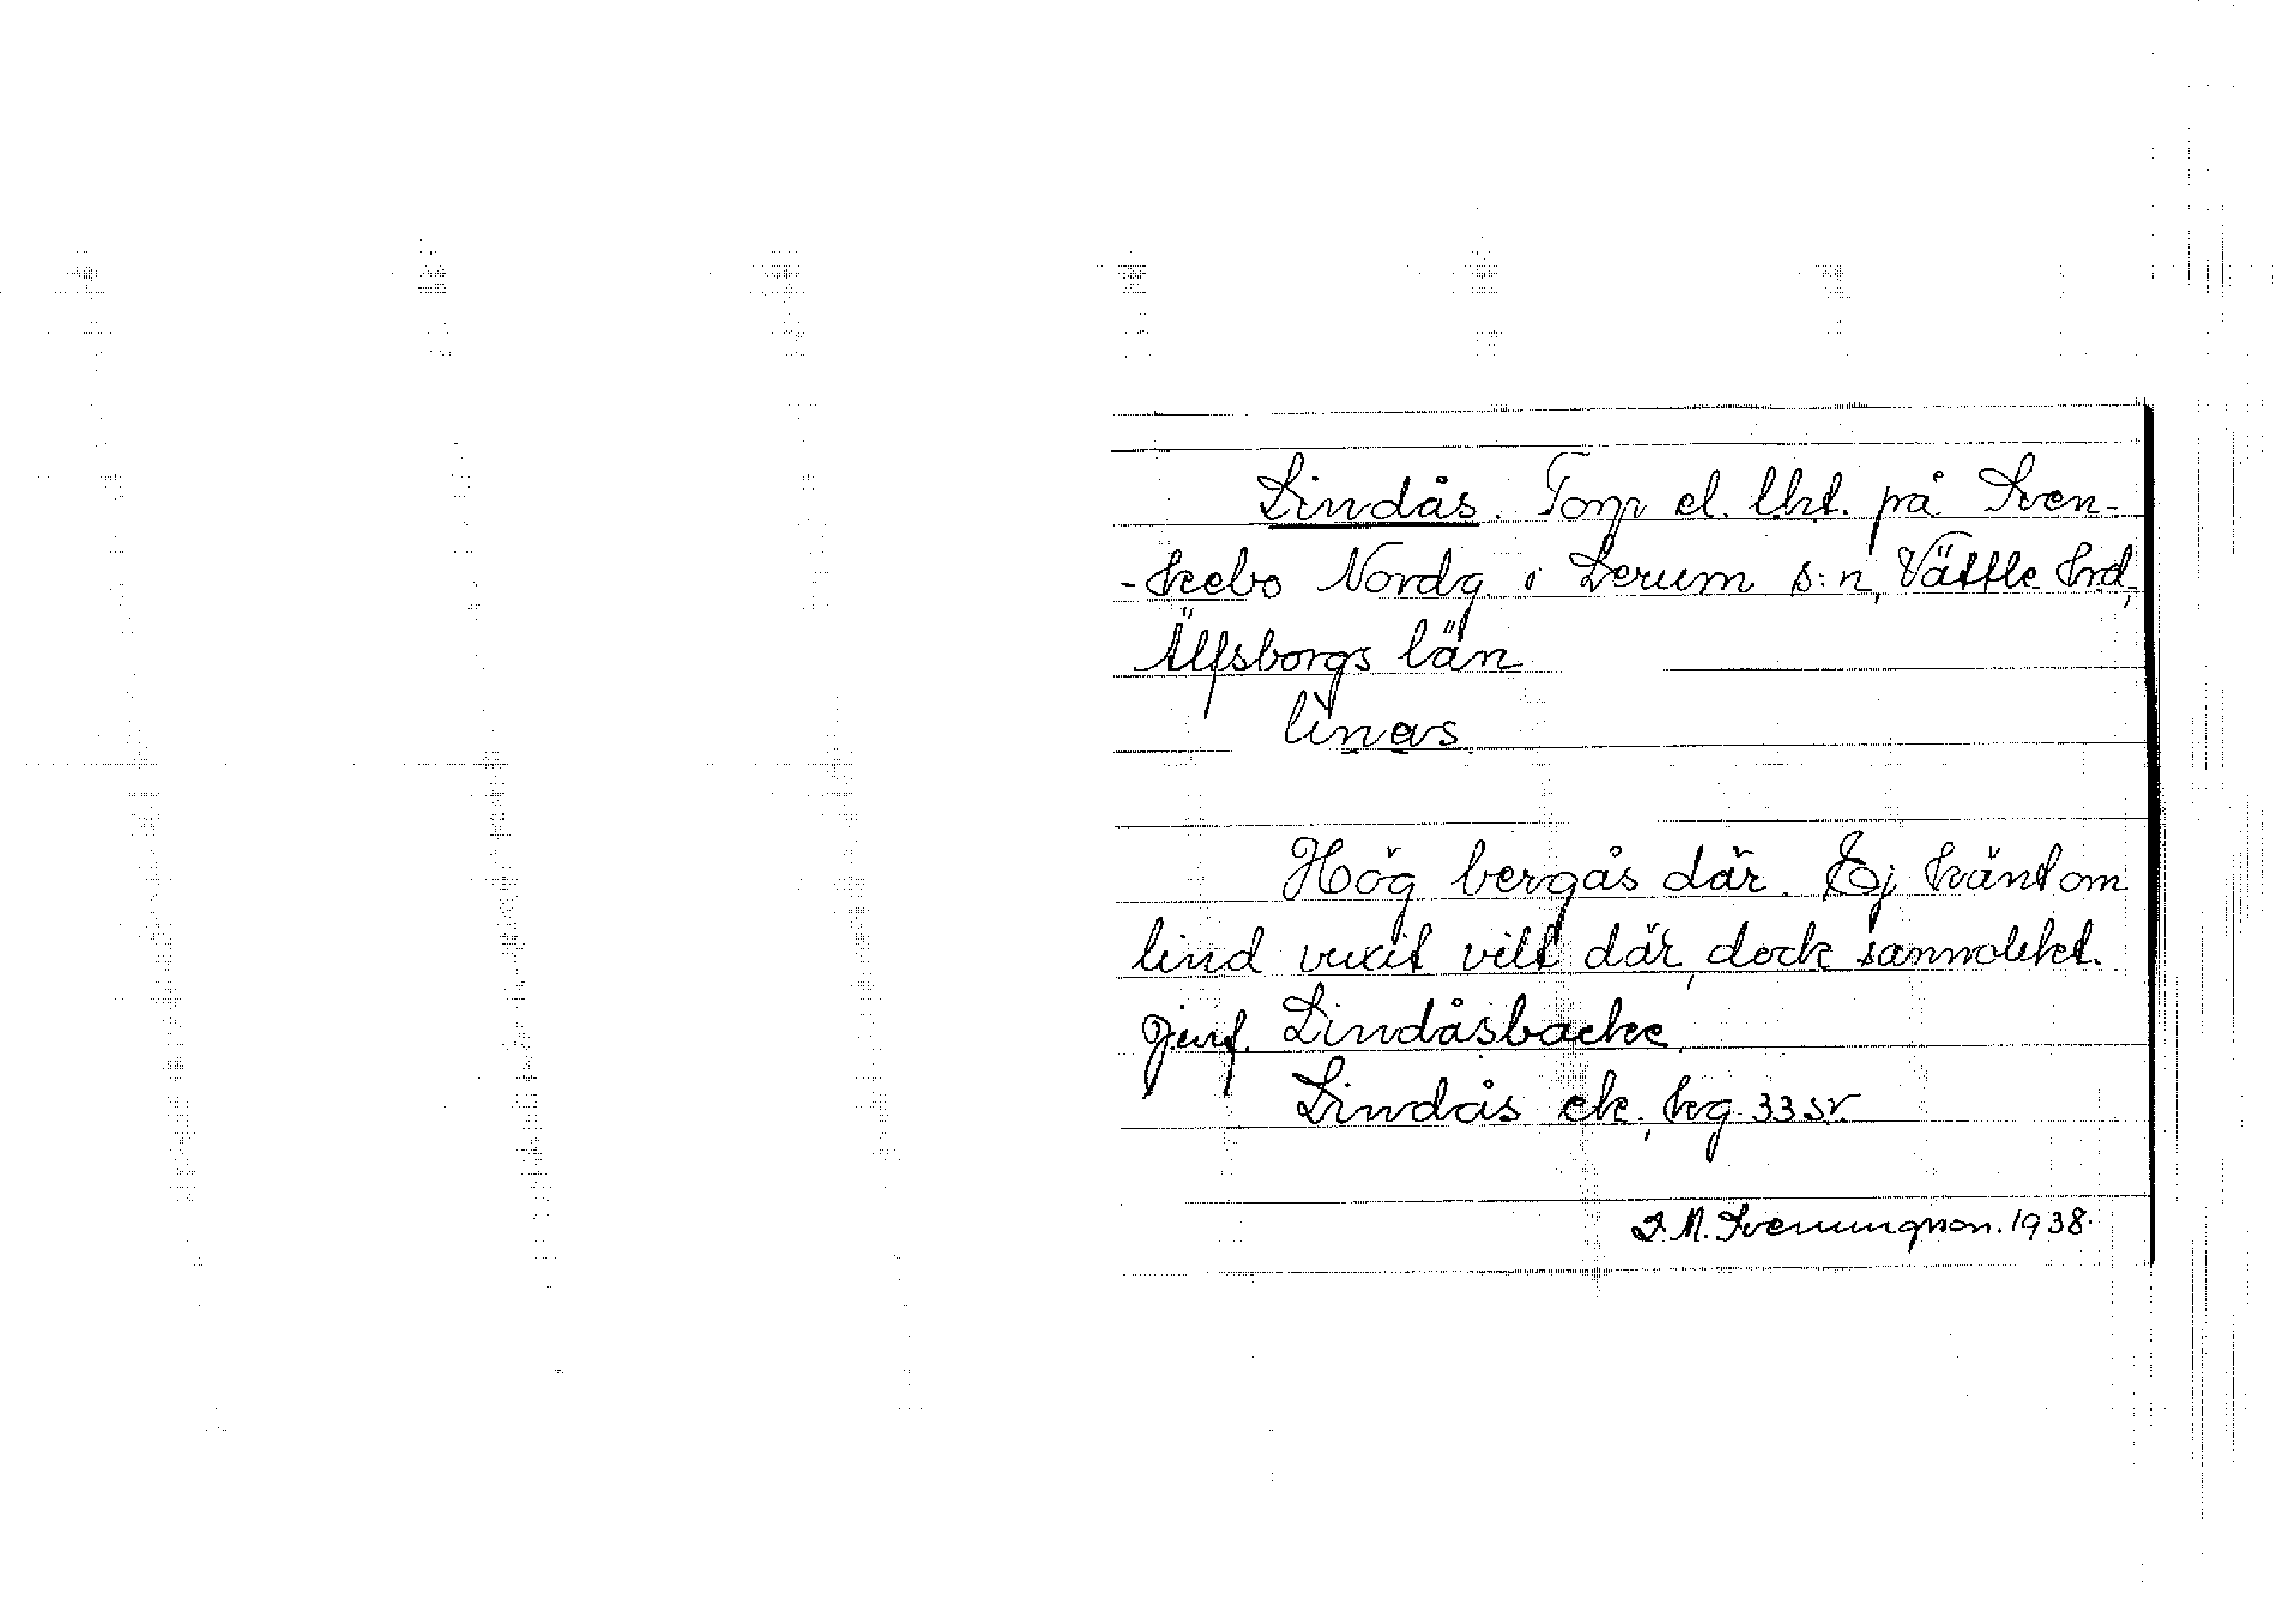 Lindås. Torp el. lht. på Sven-
-skebo Nordg. i Lerum s:n, Vättle hrd,
Älfsborgs län
linas
Hög bergås där. Ej känt om
lind vuxit vilt där, dock sannolikt.
Jmf. Lindåsbacke.
Lindås ek., kg. 33 sr.
S. M. Svenungson. 1938.